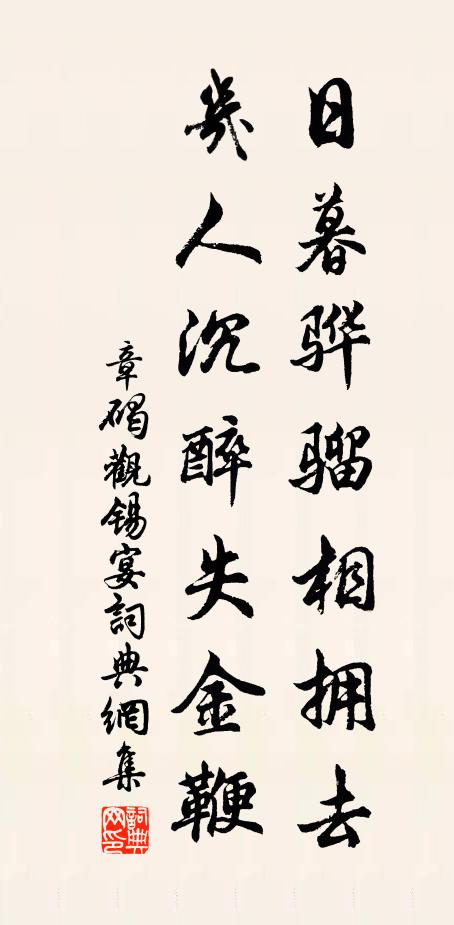 日暮骅骝相拥去
几人沉醉失金鞭
章碣觀锡宴詞典網集
詞典网印